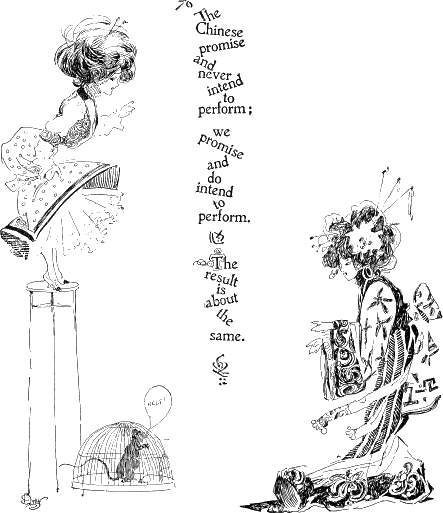 The
Chinese
promise
and
never
intend
to
perform;
we
promise
and
do
intend
to
perform.
The
result
is
about
the
same.
HELP!